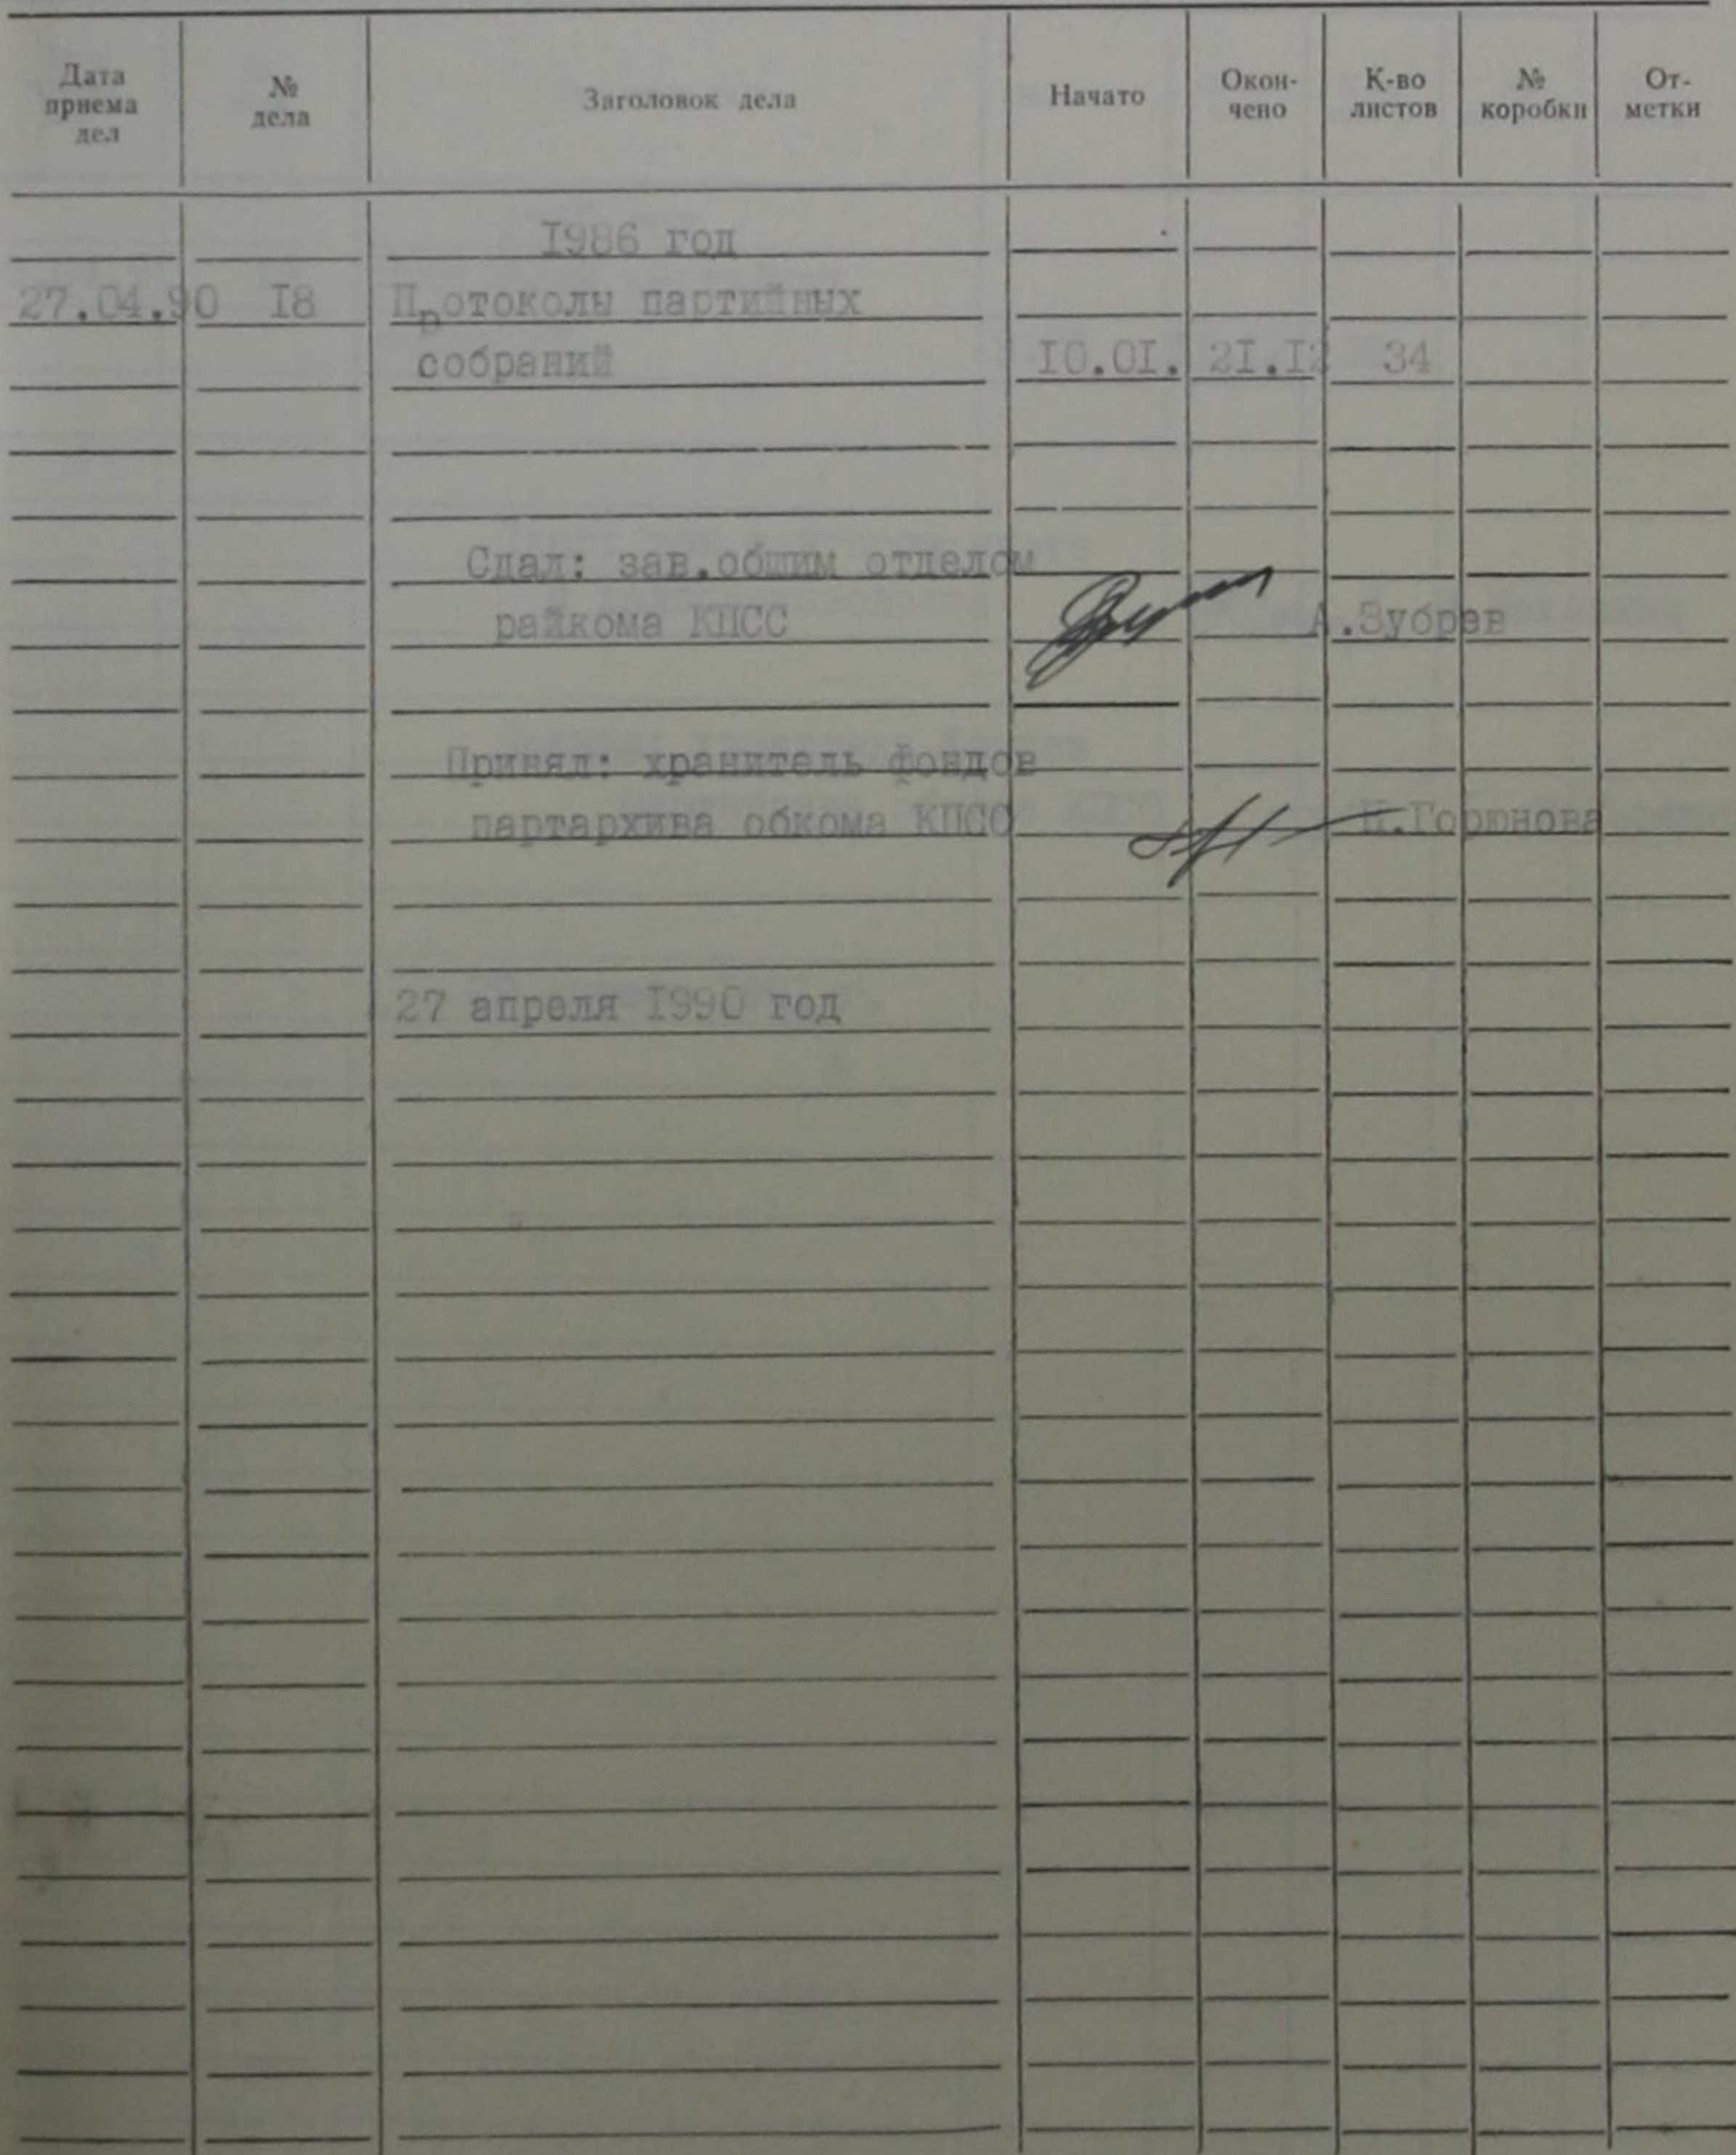 Дата приема дел № дела Заголовок дела Начато Окон-чено К-во листов № коробки От-метки
I986 год
27.04.90 I8 Протоколы партийных
собраний I0.0I. 2I.I2 34
Сдал: зав.общим отделом
райкома КПСС А.Зубрев
Принял: хранитель фондов
партархива обкома КПСС Н.Горюнова
27 апреля I990 год